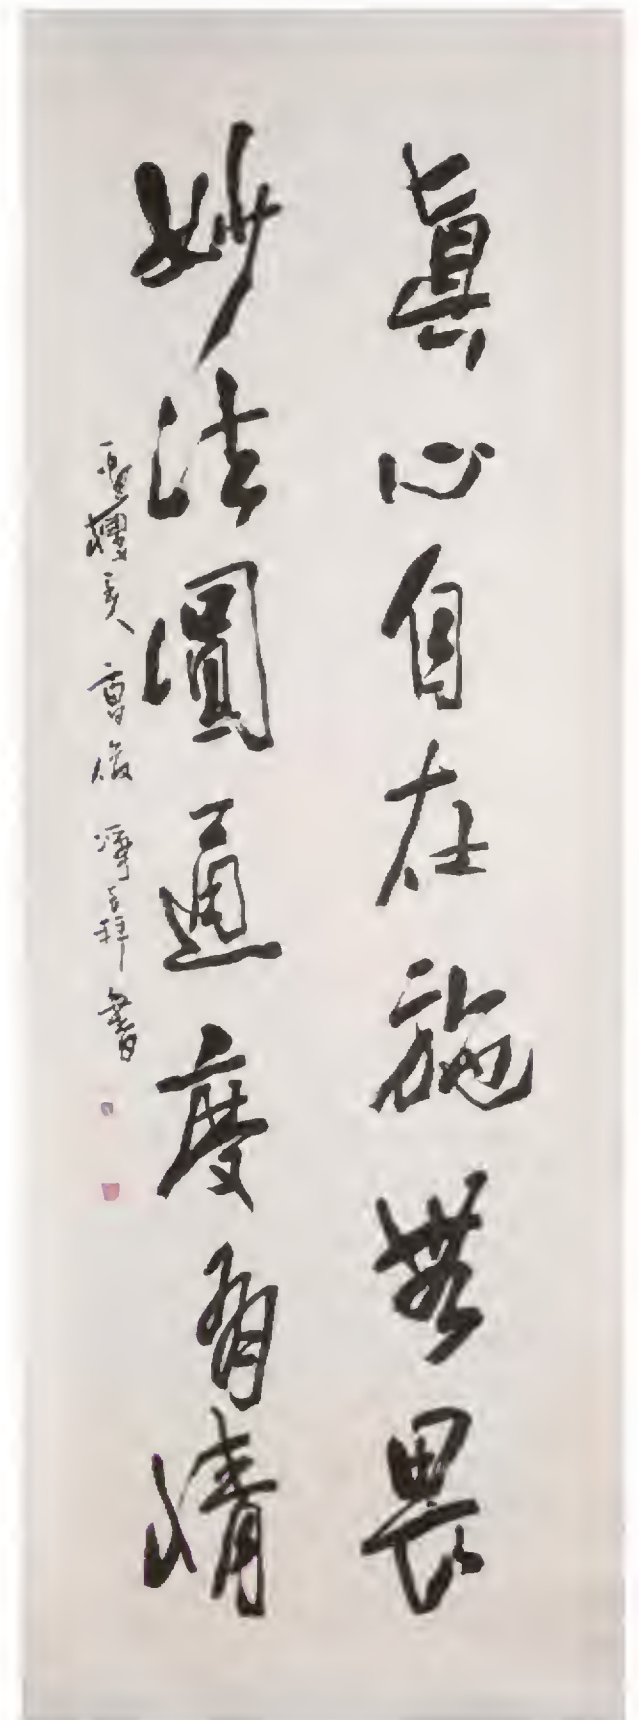 眞心自在施無畏
妙法圓通度有情
書